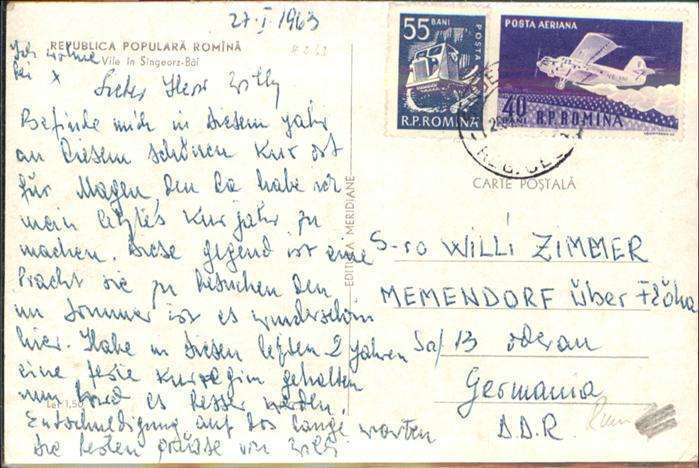 27-I-1963
REPUBLICA POPULARĂ ROMÎNĂ
Vile în Singeorz-Băi
Ich wohne
bei x
Lieber Herr Willy
Befinde mich in diesem Jahr
an diesem schönen Kur ort
für Magen den da habe ich
mein letztes Kurjahr zu
machen. Diese gegend ist eine
Pracht sie zu besuchen den
im Sommer ist es wunderschön
hier. Habe in diesen letzten 2 Jahren
eine feste Kurregim gehalten
nun wird es besser werden.
Entschuldigung auf das lange warten
die besten grüsse von Willy
Lei 1,50
EDITURA MERIDIANE
55 BANI
POSTA
R.P.ROMINA
POSTA AERIANA
40 BANI
R.P.ROMINA
CARTE POȘTALĂ
S-ro WILLI ZIMMER
MEMENDORF über Flöha
Sa/ 13 oderan
Germania
D.D.R.